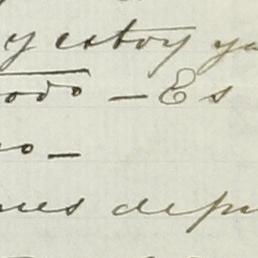 y estoy ya
odo — Es
o —
ues depu